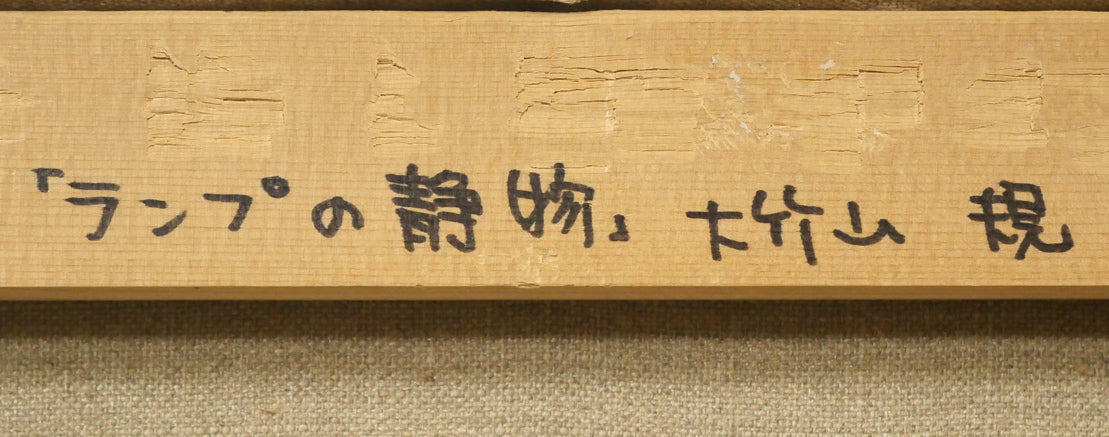 「ランプの静物」 大竹山 規